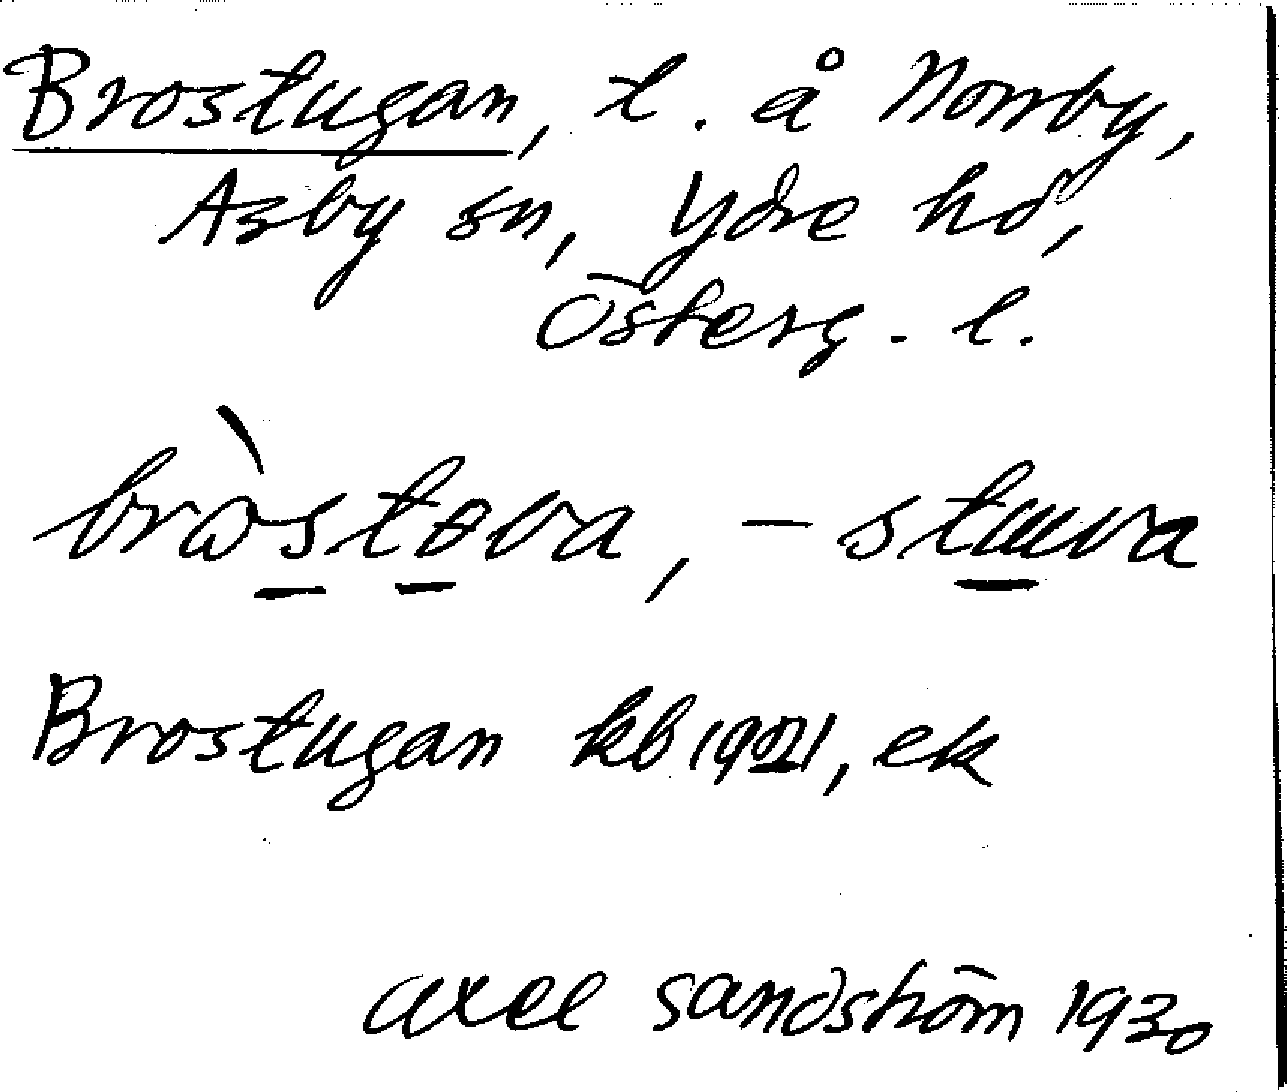 Brostugan, t. å Norrby,
Asby sn, Ydre hd,
Österg. l.
bròstova, - stuva
Brostugan kb 1921, ek
Axel Sandström 1930